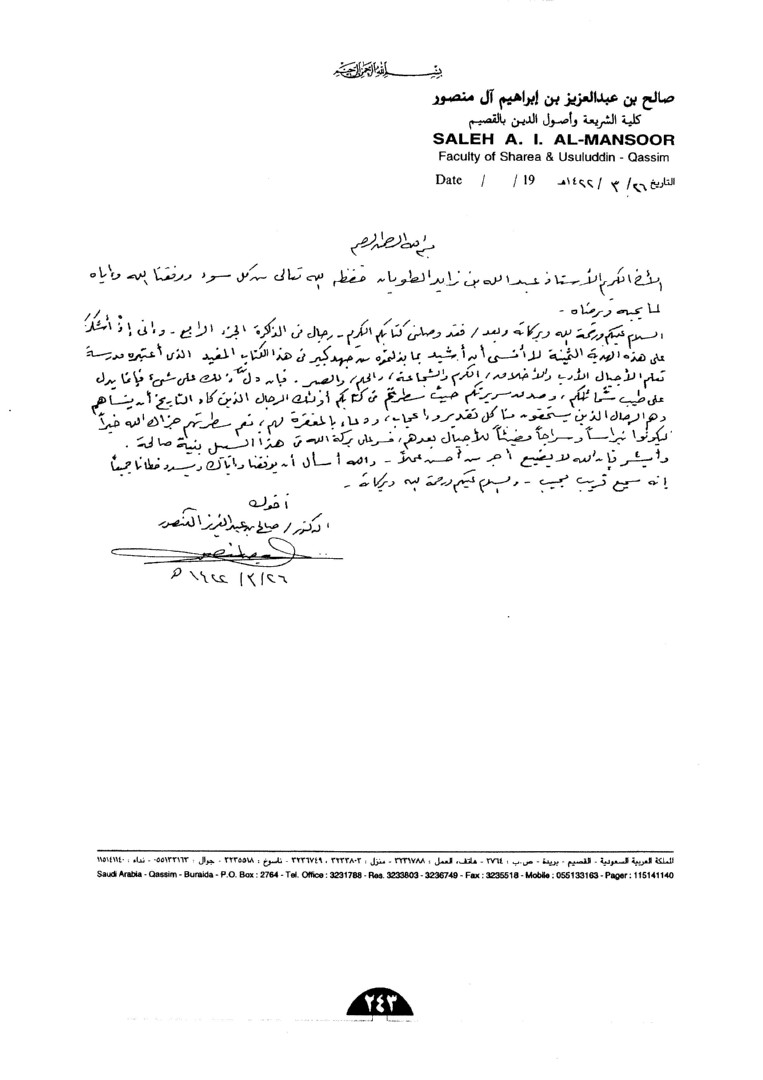 بسم الله الرحمن الرحيم
صالح بن عبدالعزيز بن إبراهيم آل منصور
كلية الشريعة وأصول الدين بالقصيم
SALEH A. I. AL-MANSOOR
Faculty of Sharea & Usuluddin - Qassim
Date / / 19 التاريخ ٢٦/ ٣ / ١٤٢٢هـ
بسم الله الرحمن الرحيم
الأخ المكرم الأستاذ عبدالله بن زايد الطويان حفظه الله تعالى من كل سوء ووفقنا الله وإياه
لما يحبه ويرضاه -
السلام عليكم ورحمة الله وبركاته وبعد / فقد وصلني كتابكم الكريم - رجال في الذاكرة الجزء الرابع - وإني إذْ أشكركم
على هذه الهدية الثمينة لا أنسى أن أشيد بما بذلتموه من جهد كبير في هذا الكتاب المفيد الذي أعتبره مدرسة
تعلم الأجيال الأدب والأخلاق، الكرم والشجاعة، والحلم، والصبر. فإن دلَّ ذلك على شيء فإنما يدل
على طيب شمائلكم، وصدق سريرتكم حيث سطرتم في كتابكم أولئك الرجال الذين كاد التاريخ أن ينساهم
وهم الرجال الذين يستحقون منا كل تقدير وإعجاب، ودعاء بالمغفرة لهم، نعم سطرتهم جزاك الله خيراً
ليكونوا نبراساً وسراجاً مضيئاً للأجيال بعدهم، فسر على بركة الله في هذا السبيل بنية صالحة .
وأبشر فإن الله لا يضيع أجر من أحسن عملاً - والله أسأل أن يوفقنا وإياك ويسدد خطانا جميعاً
إنه سميع قريب مجيب - والسلام عليكم ورحمة الله وبركاته -
أخوك
الدكتور / صالح بن عبدالعزيز المنصور
٢٦/٣/١٤٢٢هـ
المملكة العربية السعودية - القصيم - بريدة - ص.ب : ٢٧٦٤ - هاتف، العمل : ٣٢٣١٧٨٨ - منزل : ٣٢٣٣٨٠٣ ، ٣٢٣٦٧٤٩ - ناسوخ : ٣٢٣٥٥١٨ - جوال : ٠٥٥١٣٣١٦٣ - نداء : ١١٥١٤١١٤٠
Saudi Arabia - Qassim - Buraida - P.O. Box : 2764 - Tel. Office : 3231788 - Res. 3233803 - 3236749 - Fax : 3235518 - Mobile : 055133163 - Pager : 115141140
٢٤٣